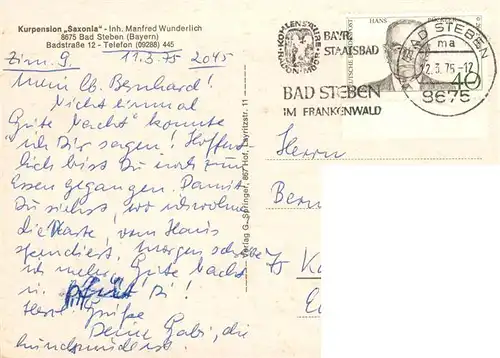 Kurpension „Saxonia" - Inh. Manfred Wunderlich
8675 Bad Steben (Bayern)
Badstraße 12 - Telefon (09288) 445
Zim. 9. 11.3.75 2045
Mein lb. Bernhard!
Nicht einmal
Gute Nacht" konnte
ich Dir sagen! Hoffent-
lich bist Du noch zum
Essen gegangen. Damit
Du siehst, wo ich wohne
die Karte, vom Haus
spendiert, morgen schreibe
ich mehr. Gute Nacht
u. Pfüat Di!
Herzl. Grüße
Deine Gabi, die
Verlag G. Springer, 867 Hof, Layritzstr. 11
BAYR.
STAATSBAD
BAD STEBEN
IM FRANKENWALD
HANS
BAD STEBEN
ma
12.3.75-12
8675
40
Herrn
Bern